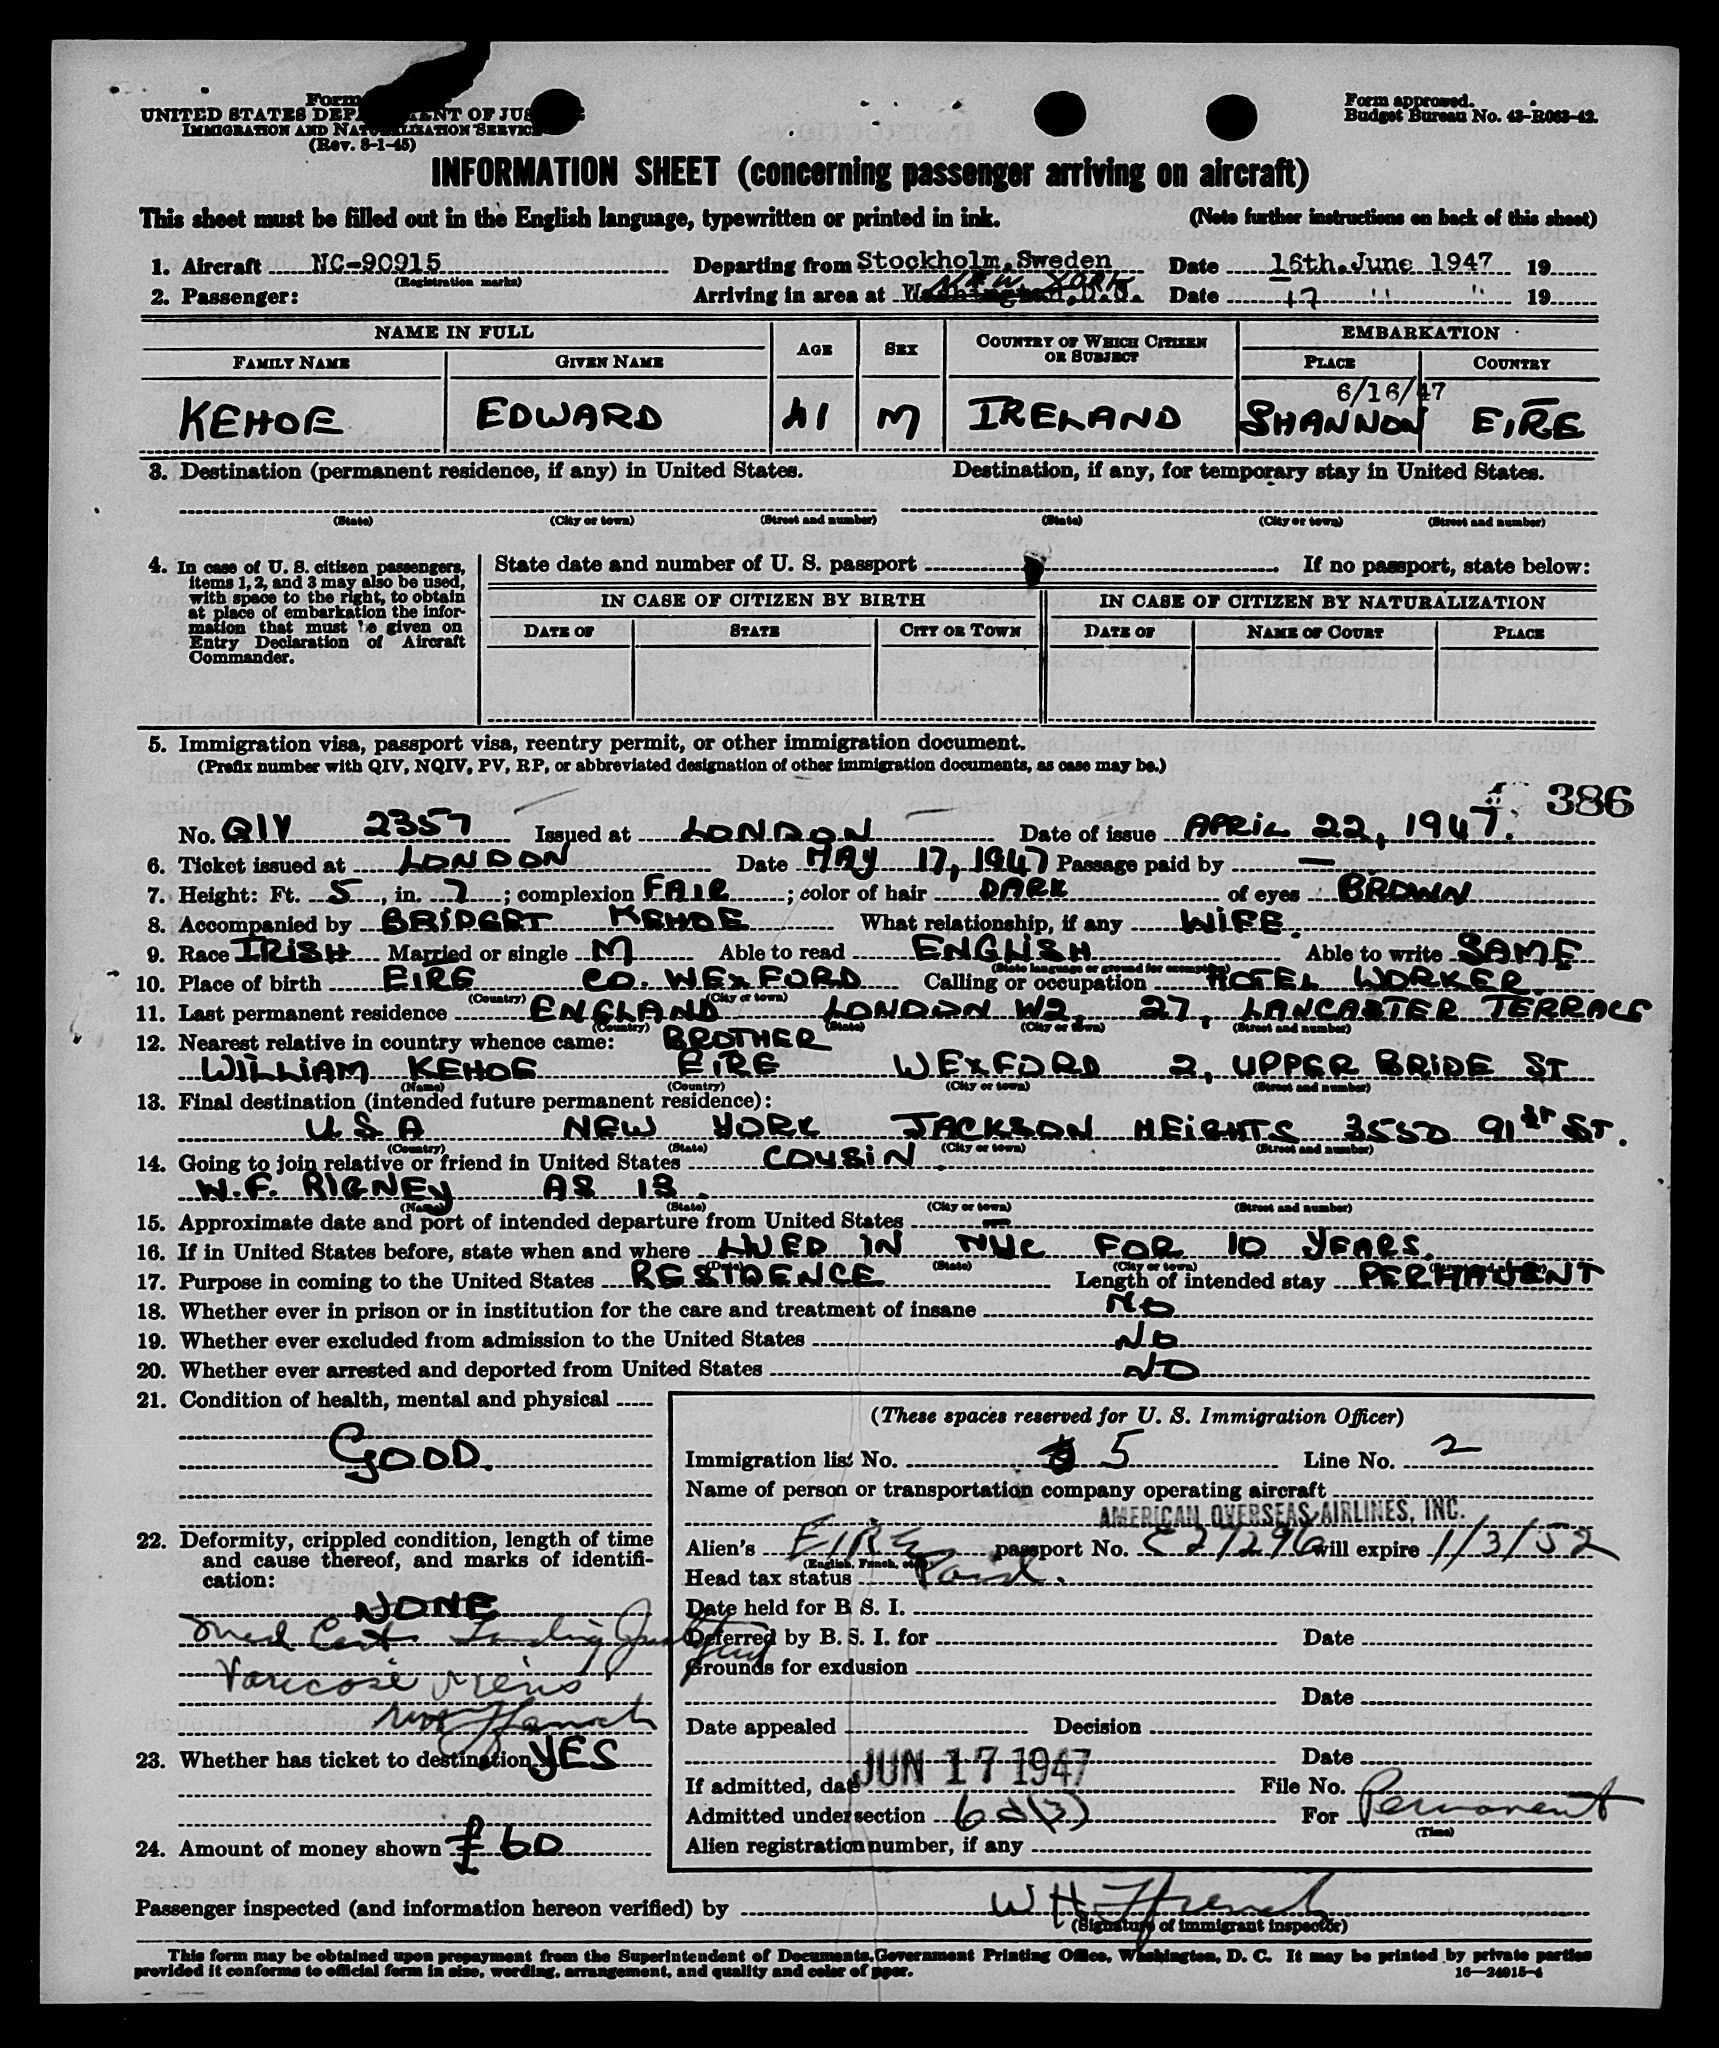 Form
UNITED STATES DEPARTMENT OF JUSTICE
IMMIGRATION AND NATURALIZATION SERVICE
(Rev. 8-1-45)
Form approved.
Budget Bureau No. 43-R063-42.
INFORMATION SHEET (concerning passenger arriving on aircraft)
This sheet must be filled out in the English language, typewritten or printed in ink. (Note further instructions on back of this sheet)
1. Aircraft NC-90915 Departing from Stockholm, Sweden Date 16th. June 1947 19
(Registration marks)
NEW YORK
2. Passenger: Arriving in area at Washington, D.C. Date 17 " " 19
NAME IN FULL AGE SEX COUNTRY OF WHICH CITIZEN OR SUBJECT EMBARKATION
FAMILY NAME GIVEN NAME PLACE COUNTRY
6/16/47
KEHOE EDWARD 41 M IRELAND SHANNON EIRE
3. Destination (permanent residence, if any) in United States. Destination, if any, for temporary stay in United States.
(State) (City or town) (Street and number) (State) (City or town) (Street and number)
4. In case of U. S. citizen passengers, items 1, 2, and 3 may also be used, with space to the right, to obtain at place of embarkation the information that must be given on Entry Declaration of Aircraft Commander.
State date and number of U. S. passport . If no passport, state below:
IN CASE OF CITIZEN BY BIRTH IN CASE OF CITIZEN BY NATURALIZATION
DATE OF STATE CITY OR TOWN DATE OF NAME OF COURT PLACE
5. Immigration visa, passport visa, reentry permit, or other immigration document.
(Prefix number with QIV, NQIV, PV, RP, or abbreviated designation of other immigration documents, as case may be.)
386
No. QIV 2357 Issued at LONDON Date of issue APRIL 22, 1947.
6. Ticket issued at LONDON Date MAY 17, 1947 Passage paid by —
7. Height: Ft. 5, in. 7; complexion FAIR; color of hair DARK of eyes BROWN
8. Accompanied by BRIDGET KEHOE What relationship, if any WIFE.
9. Race IRISH Married or single M Able to read ENGLISH Able to write SAME
(State language or ground for exemption)
10. Place of birth EIRE CO. WEXFORD Calling or occupation HOTEL WORKER.
(Country) (City or town)
11. Last permanent residence ENGLAND LONDON W2, 27, LANCASTER TERRACE
(Country) (State) (City or town) (Street and number)
12. Nearest relative in country whence came: BROTHER
WILLIAM KEHOE EIRE WEXFORD 2, UPPER BRIDE ST
(Name) (Country) (City or town) (Street and number)
13. Final destination (intended future permanent residence):
U S A NEW YORK JACKSON HEIGHTS 3550 91st ST.
(Country) (State) (City or town) (Street and number)
14. Going to join relative or friend in United States COUSIN.
W.F. RIGNEY AS 13.
(Name) (State) (City or town) (Street and number)
15. Approximate date and port of intended departure from United States —
16. If in United States before, state when and where LIVED IN NYC FOR 10 YEARS.
(Date) (State) (City or town)
17. Purpose in coming to the United States RESIDENCE Length of intended stay PERMANENT
18. Whether ever in prison or in institution for the care and treatment of insane NO
19. Whether ever excluded from admission to the United States NO
20. Whether ever arrested and deported from United States NO
21. Condition of health, mental and physical
GOOD.
22. Deformity, crippled condition, length of time and cause thereof, and marks of identification:
NONE
Med Cert
Varicose Veins
23. Whether has ticket to destination YES
24. Amount of money shown £ 60
(These spaces reserved for U. S. Immigration Officer)
Immigration list No. 5 Line No. 2
Name of person or transportation company operating aircraft
AMERICAN OVERSEAS AIRLINES, INC.
Alien's EIRE passport No. C27296 will expire 1/3/52
(English, French, etc.)
Head tax status Paid.
Date held for B. S. I.
Deferred by B. S. I. for Date
Grounds for exclusion
Date
Date appealed Decision
Date
If admitted, date JUN 17 1947 File No.
Admitted under section 6a(3) For Permanent
(Time)
Alien registration number, if any
Passenger inspected (and information hereon verified) by W H Ffrench
(Signature of immigrant inspector)
This form may be obtained upon prepayment from the Superintendent of Documents, Government Printing Office, Washington, D. C. It may be printed by private parties
provided it conforms to official form in size, wording, arrangement, and quality and color of paper. 16—24915-4